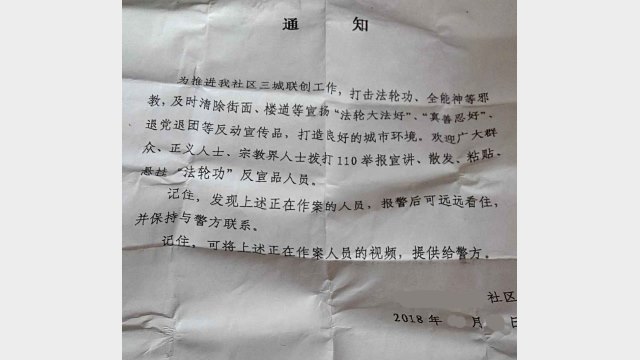 通 知
为推进我社区三城联创工作，打击法轮功、全能神等邪
教，及时清除街面、楼道等宣扬“法轮大法好”、“真善忍好”、
退党退团等反动宣传品，打造良好的城市环境。欢迎广大群
众、正义人士、宗教界人士拨打 110 举报宣讲、散发、粘贴、
悬挂“法轮功”反宣品人员。
记住，发现上述正在作案的人员，报警后可远远看住，
并保持与警方联系。
记住，可将上述正在作案人员的视频，提供给警方。
社区
2018 年 月 日